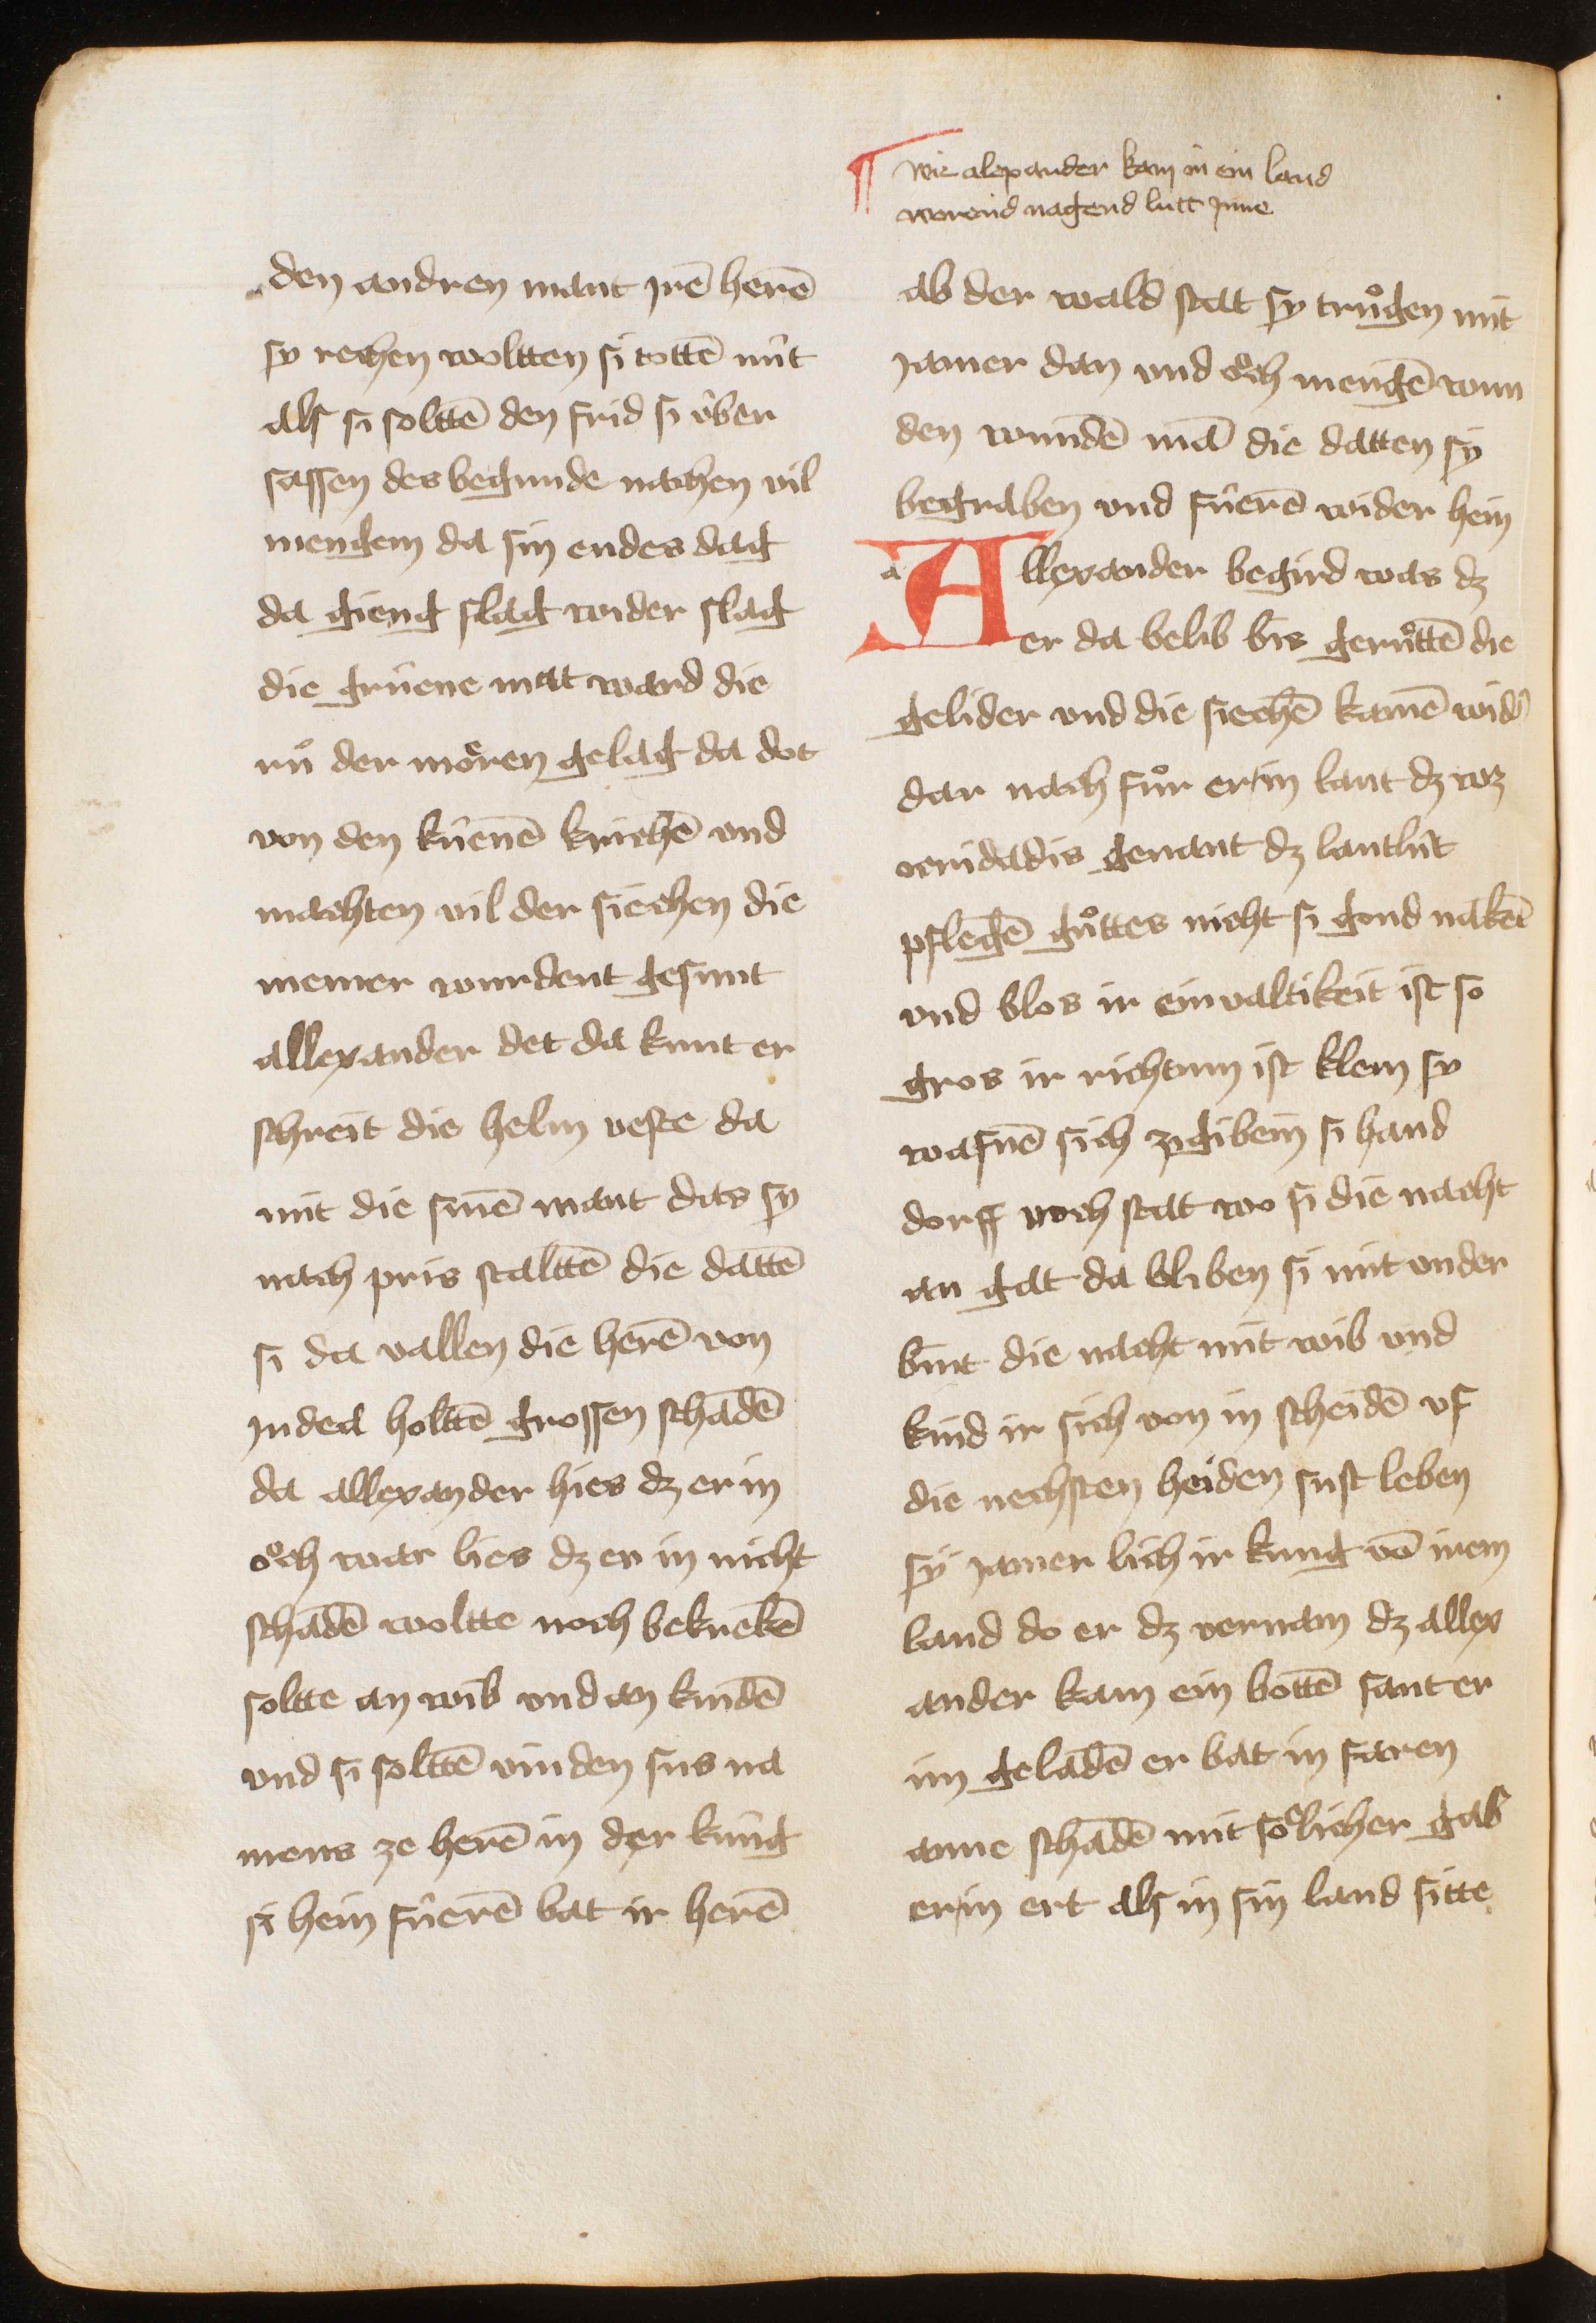 den andren mant jrē herē
sy rechen woltten si tottē nüt
als si solttē den frid si v̂ber
sassen des begunde nachen vil
mengem da sin endes dag
da gieng slag wider slag
die grüene mat ward die
rů der moͤren gelag da dot
von den küenē kriechē vnd
machten vil der siechen die
niemer wurdent gesunt
allexander det da kunt er
schreit die helm veste da
mit die sinē mant das sy
nach pris stalttē die dattē
si da vallen die herē von
jndea holttē grossen schadē
da allexander hies dz er in
oͮch war lies dz er in nicht
schadē woltte noch bekrekē
soltte an wib vnd an kindē
vnd si solttē vinden sus na
mens ze herē in der küng
si hein füerē bat ir herē
¶ wie alexander kam in ein land
worend nagend lütt jnne
ab der wald stat sy trůgen mit
jamer dan vnd oͮch mengē wun
den wundē mā die datten sy
begraben vnd füerē wider hein
Allexander begird was dz
er da belib bis gerůttē die
gelider vnd die siechē kamē wid̾
dar nach fůr er in lant dz wz
oxridadis genant dz lantlüt
pflegē gůttes nicht si gond nakēt
vnd blos ir einvaltikeit ist so
gros ir richtum ist klein sy
wafnē sich zgibein si hand
dorff noch stat wo si die nacht
an gat da bliben si mit vnder
bint die nacht mit wib vnd
kind ir sich von in scheidē vf
die nechsten heiden sust leben
sy jamer lich ir kung vō irem
land do er dz vernam dz allex
ander kam ein bottē sant er
im geladē er bat in faren
anne schadē mit soͤlicher gab
er in ert als in sin land sitte